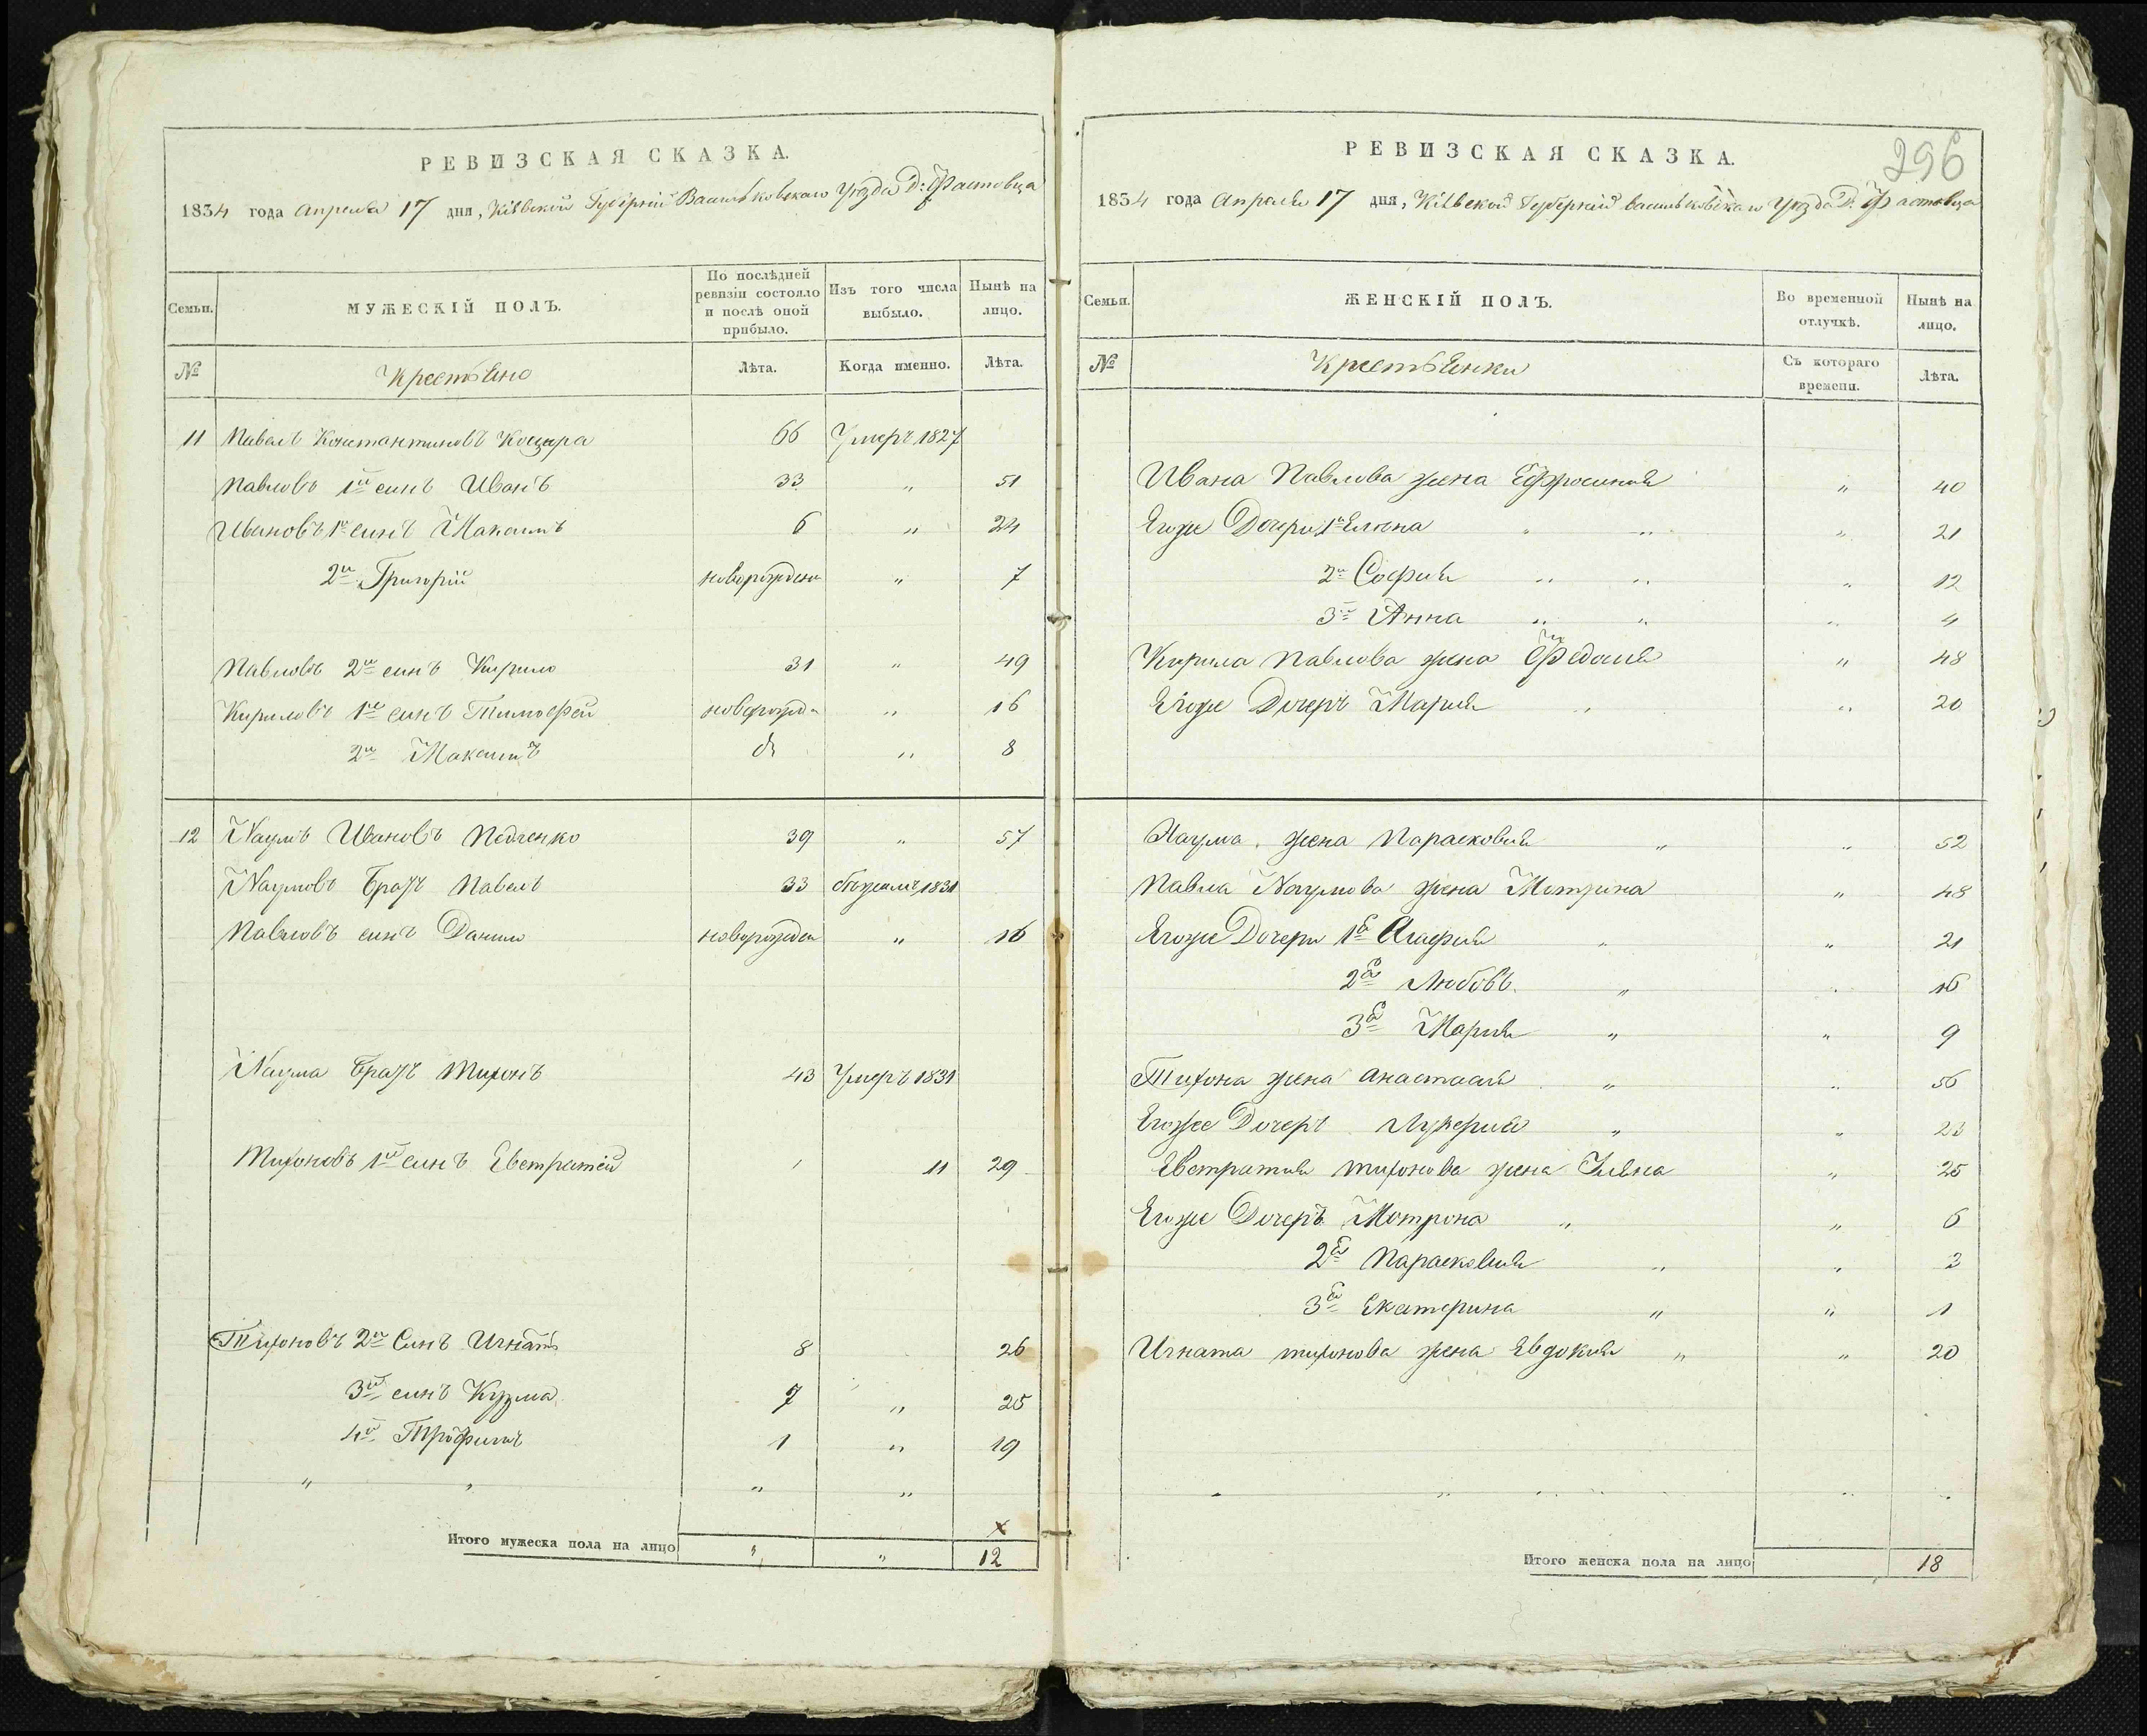 РЕВИЗСКАЯ СКАЗКА.
1834 года апреля 17 дня, Кіевской Губерніи Васильковскаго Уезда Д: Фастовца
Семьи. МУЖЕСКІЙ ПОЛЪ. По послѣдней ревизіи состояло и послѣ оной прибыло. Изъ того числа выбыло. Нынѣ на лицо.
№ Лѣта. Когда именно. Лѣта.
11 Павелъ Константиновъ Коцюра 66 Умеръ 1827
Павловъ 1й синъ Иванъ 33 " 51
Ивановъ 1й синъ Максимъ 6 " 24
2й Григорій новорожден " 7
Павловъ 2й синъ Кирило 31 " 49
Кириловъ 1й синъ Тимофей новорожд " 16
2й Максимъ " 8
12 Наумъ Ивановъ Педченко 39 " 57
Наумовъ братъ Павелъ 33 1831
Павловъ синъ Данило новорожден " 16
Наума братъ Тихонъ 43 Умеръ 1831
Тихоновъ 1й синъ Евстратій 11 29
Тихоновъ 2й Синъ Игнатъ 8 26
3й синъ Кузма 7 " 25
4й Трофимъ 1 " 19
" " " "
х
Итого мужеска пола на лицо " " 12
296
РЕВИЗСКАЯ СКАЗКА.
1834 года апреля 17 дня, Кіевской Губерніи васильковскаго Уезда Д: Фастовца
Семьи. ЖЕНСКІЙ ПОЛЪ. Во временной отлучкѣ. Нынѣ на лицо.
№ Съ котораго времени. Лѣта.
Ивана Павлова жена Ефросиния " 40
Егоже Дочери 1я Елена " 21
2я София " 12
3я Анна " 4
Кирила Павлова жена Федосия " 48
Егоже Дочеръ Мария " 20
Наума жена Парасковия " " 52
Павла Наумова жена Мотрина " 48
Егоже Дочери 1я Агафия " " 21
2я Любовъ " " 16
3я Мария " " 9
Тихона жена Анастасия " " 56
Егоже Дочеръ Лукерия " " 23
Евстратия тихонова жена Уляна " 25
Егоже Дочеръ Мотрона " " 6
2я Парасковия " " 3
3я Екатерина " " 1
Игната тихонова жена Евдокия " " 20
Итого женска пола на лицо 18